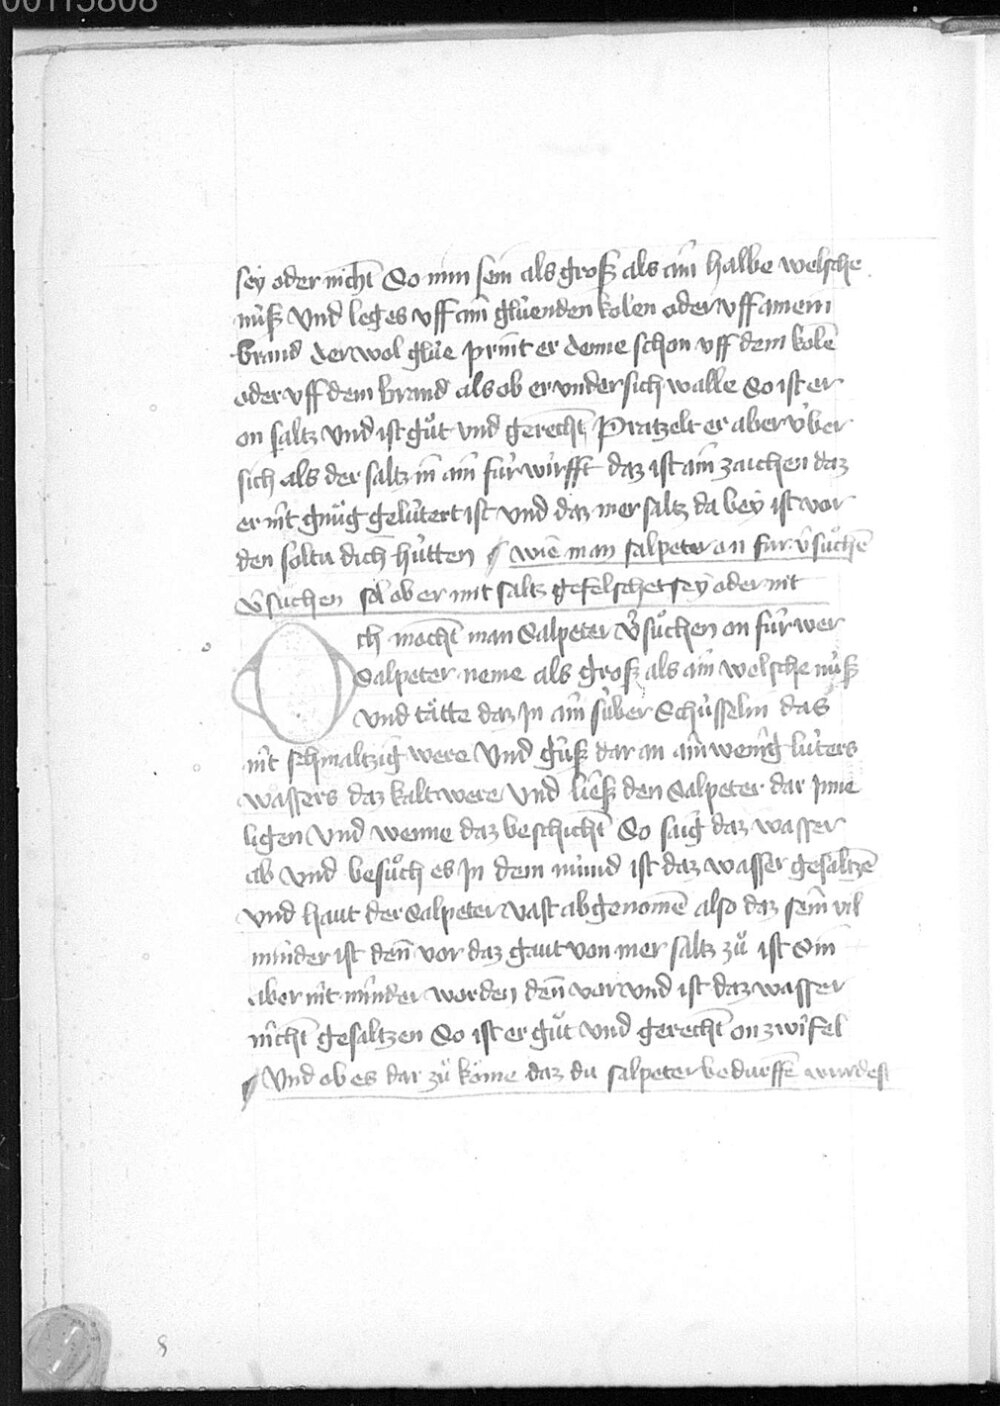 00115808
sey oder nicht So nim sein als groß als ain halbe welsche
nuß Vnd leg es vff ain glüenden kolen oder vff ainem
brand der wol glüe print er denne schon vff dem kolē
oder vff dem brand als ob er vnder sich walle So ist er
on saltz Vnd ist gůt vnd gerecht Pratzelt er aber v̈ber
sich als der saltz in ain für wirfft daz ist ain zaichen daz
er nit gnůg gelütert ist vnd daz mer saltz da bey ist vor
den soltu dich hütten ¶ wie man salpeter on für v̄sůchē
v̄suchen sol ob er mit saltz gefelschet sey oder nit
Och mocht man Salpeter v̄sůchen on für wer
Salpeter neme als groß als ain welsche nuß
Vnd tätte daz Jn ain suber Schüsselin das
nit schmaltzig were Vnd güß dar an ain wenig luters
wassers daz kalt were Vnd ließ den Salpeter dar Jnne
ligen Vnd wenne daz beschicht So saig daz wasser
ab Vnd besůch es Jn dem mund ist daz wasser gesaltzē
Vnd haut der Salpeter vast abgenomē also daz sein vil
minder ist deñ vor daz gaut von mer saltz zů ist Sin
aber nit minder worden deñ vor vnd ist daz wasser
nicht gesaltzen So ist er gůt vnd gerecht on zwifel
¶ Vnd ob es dar zů köme daz du salpeter bedurffē wurdest